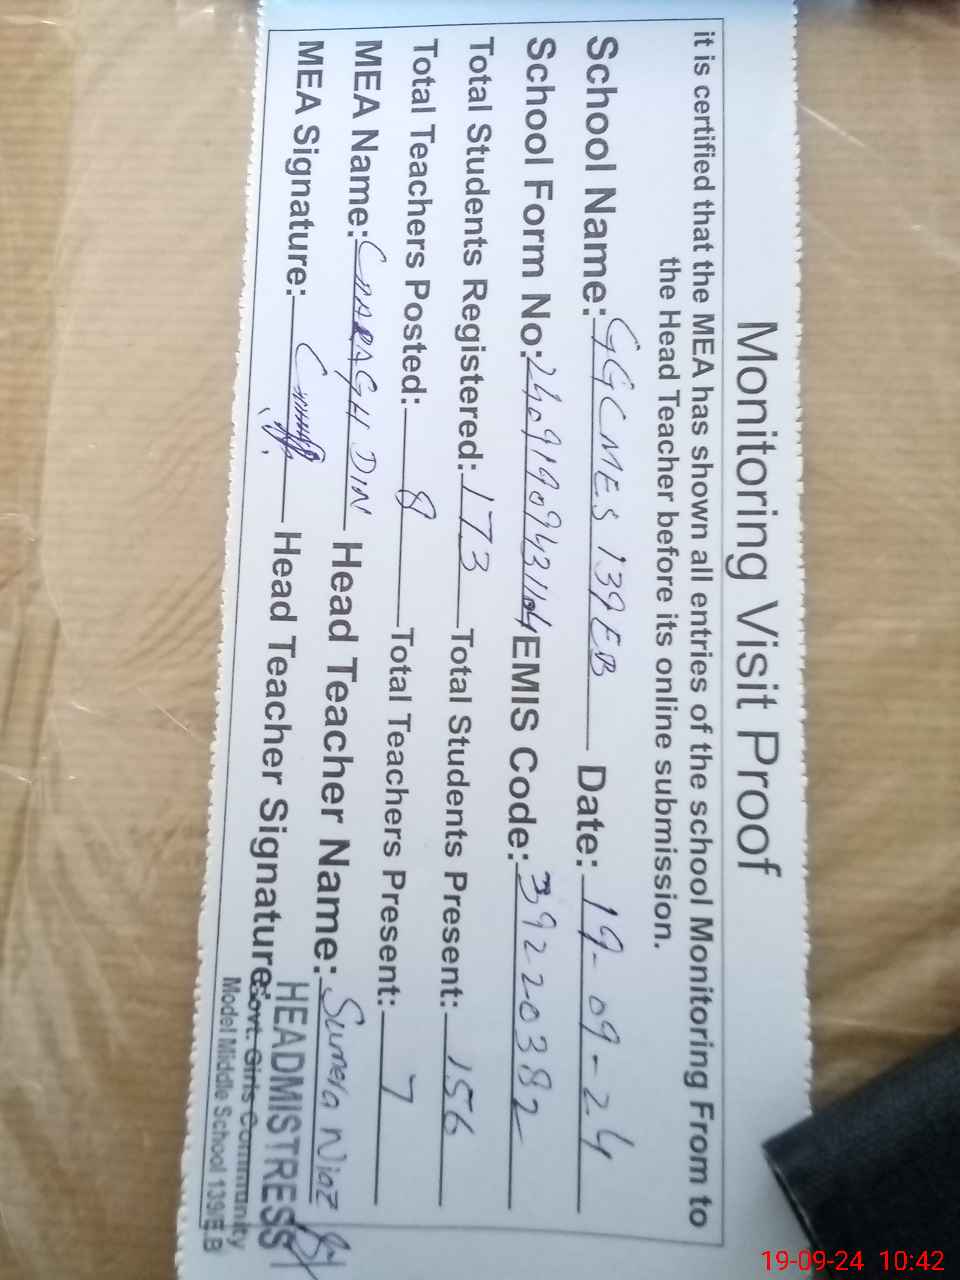 Monitoring Visit Proof
it is certified that the MEA has shown all entries of the school Monitoring From to
the Head Teacher before its online submission.
School Name: GGCMES 139 EB Date: 19-09-24
School Form No: EMIS Code: 39220382
Total Students Registered: 173 Total Students Present: 156
Total Teachers Posted: 8 Total Teachers Present: 7
MEA Name: CHARAGH DIN Head Teacher Name: Sumera Niaz
MEA Signature: Head Teacher Signature:
HEADMISTRESS
Govt. Girls Community
Model Middle School 139/E.B
19-09-24 10:42